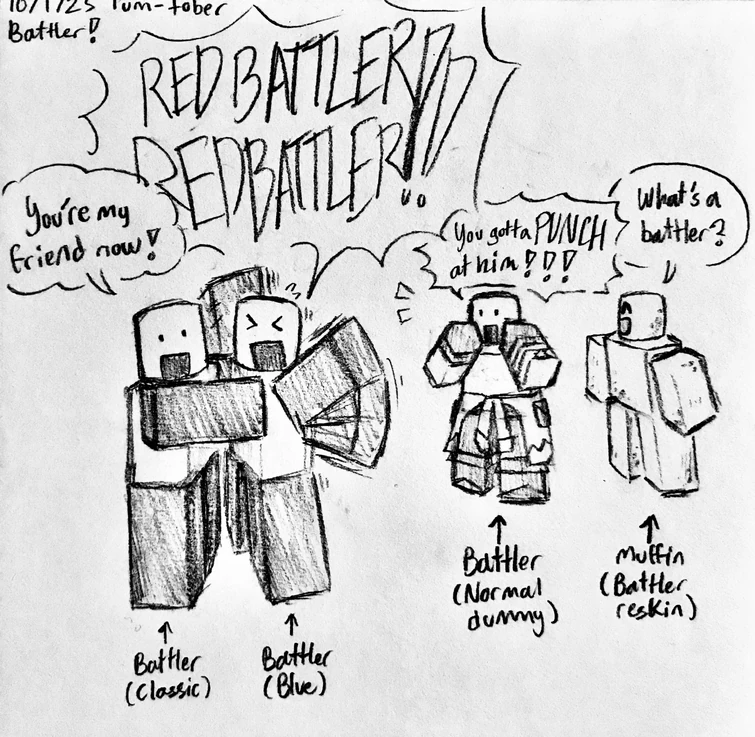 10/1/25 Tum-tober
Battler!
RED BATTLER!!!
REDBATTLER!!!
You're my
friend now!
You gotta PUNCH
at him!!!
What's a
battler?
Battler
(Classic)
Battler
(Blue)
Battler
(Normal
dummy)
Muffin
(Battler
reskin)